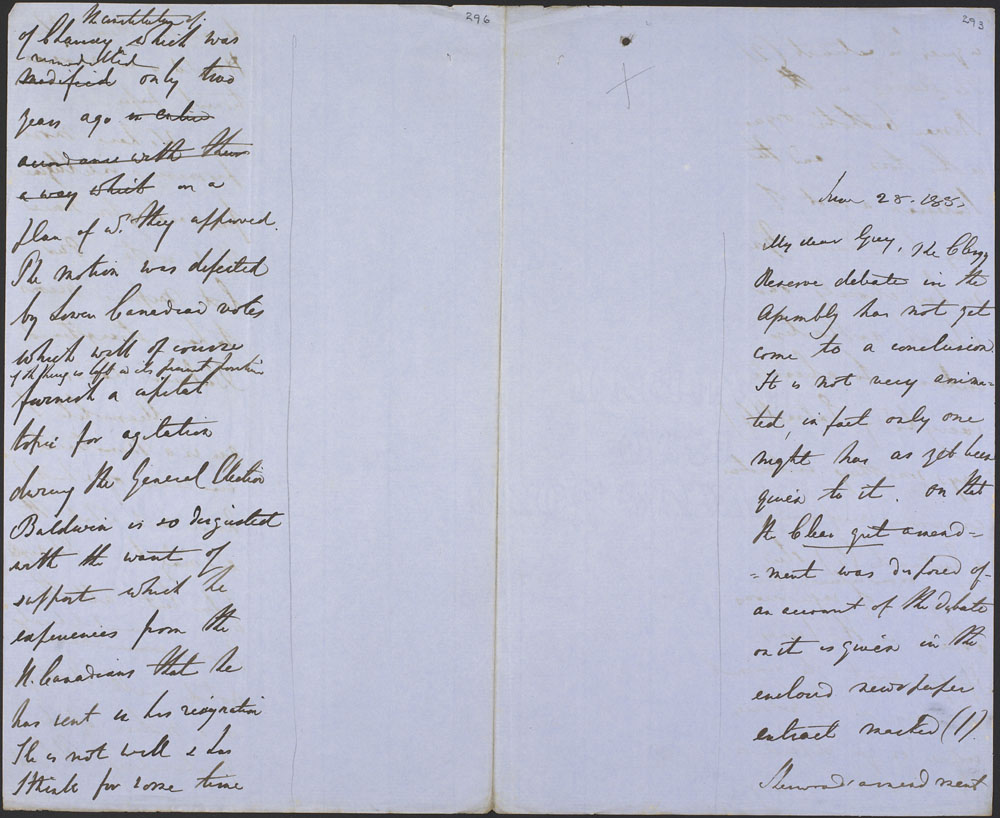 296
the institution of
of Chancy which was
remodelled
modified only two
years ago in entire
accordance with their
a way which on a
plan of wh. they approved.
The motion was defeated
by Lower Canadian votes
which will of course
if the thing is left in its present position
furnish a capital
topic for agitation
during the General Election
Baldwin is so disgusted
with the want of
support which he
experiences from the
U. Canadians that he
has sent in his resignation
He is not well & has
I think for some time
293
June 28. 185
My dear Grey, The Clergy
Reserve debate in the
Assembly has not yet
come to a conclusion.
It is not very anima-
ted, in fact only one
night has as yet been
given to it. On that
the Clear grit amend=
=ment was disposed of-
an account of the debate
on it is given in the
enclosed newspaper
extract marked (1).
Sherwood's amendment